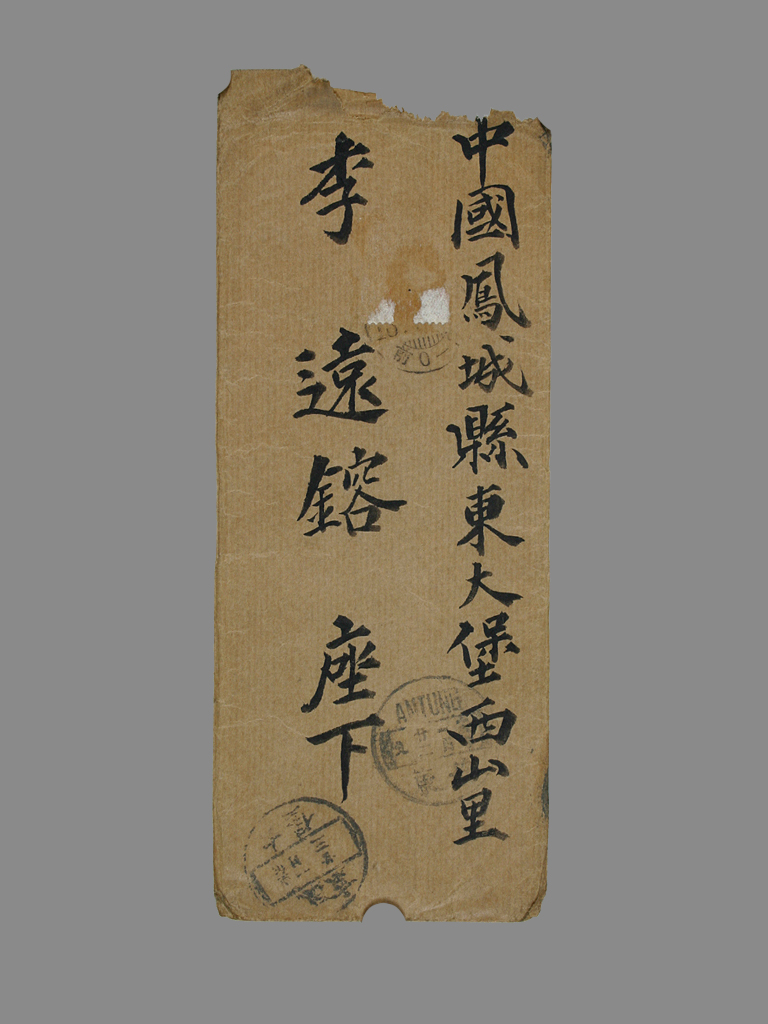 中國鳳城縣東大堡西山里
李遠鎔座下
ANTUNG
東